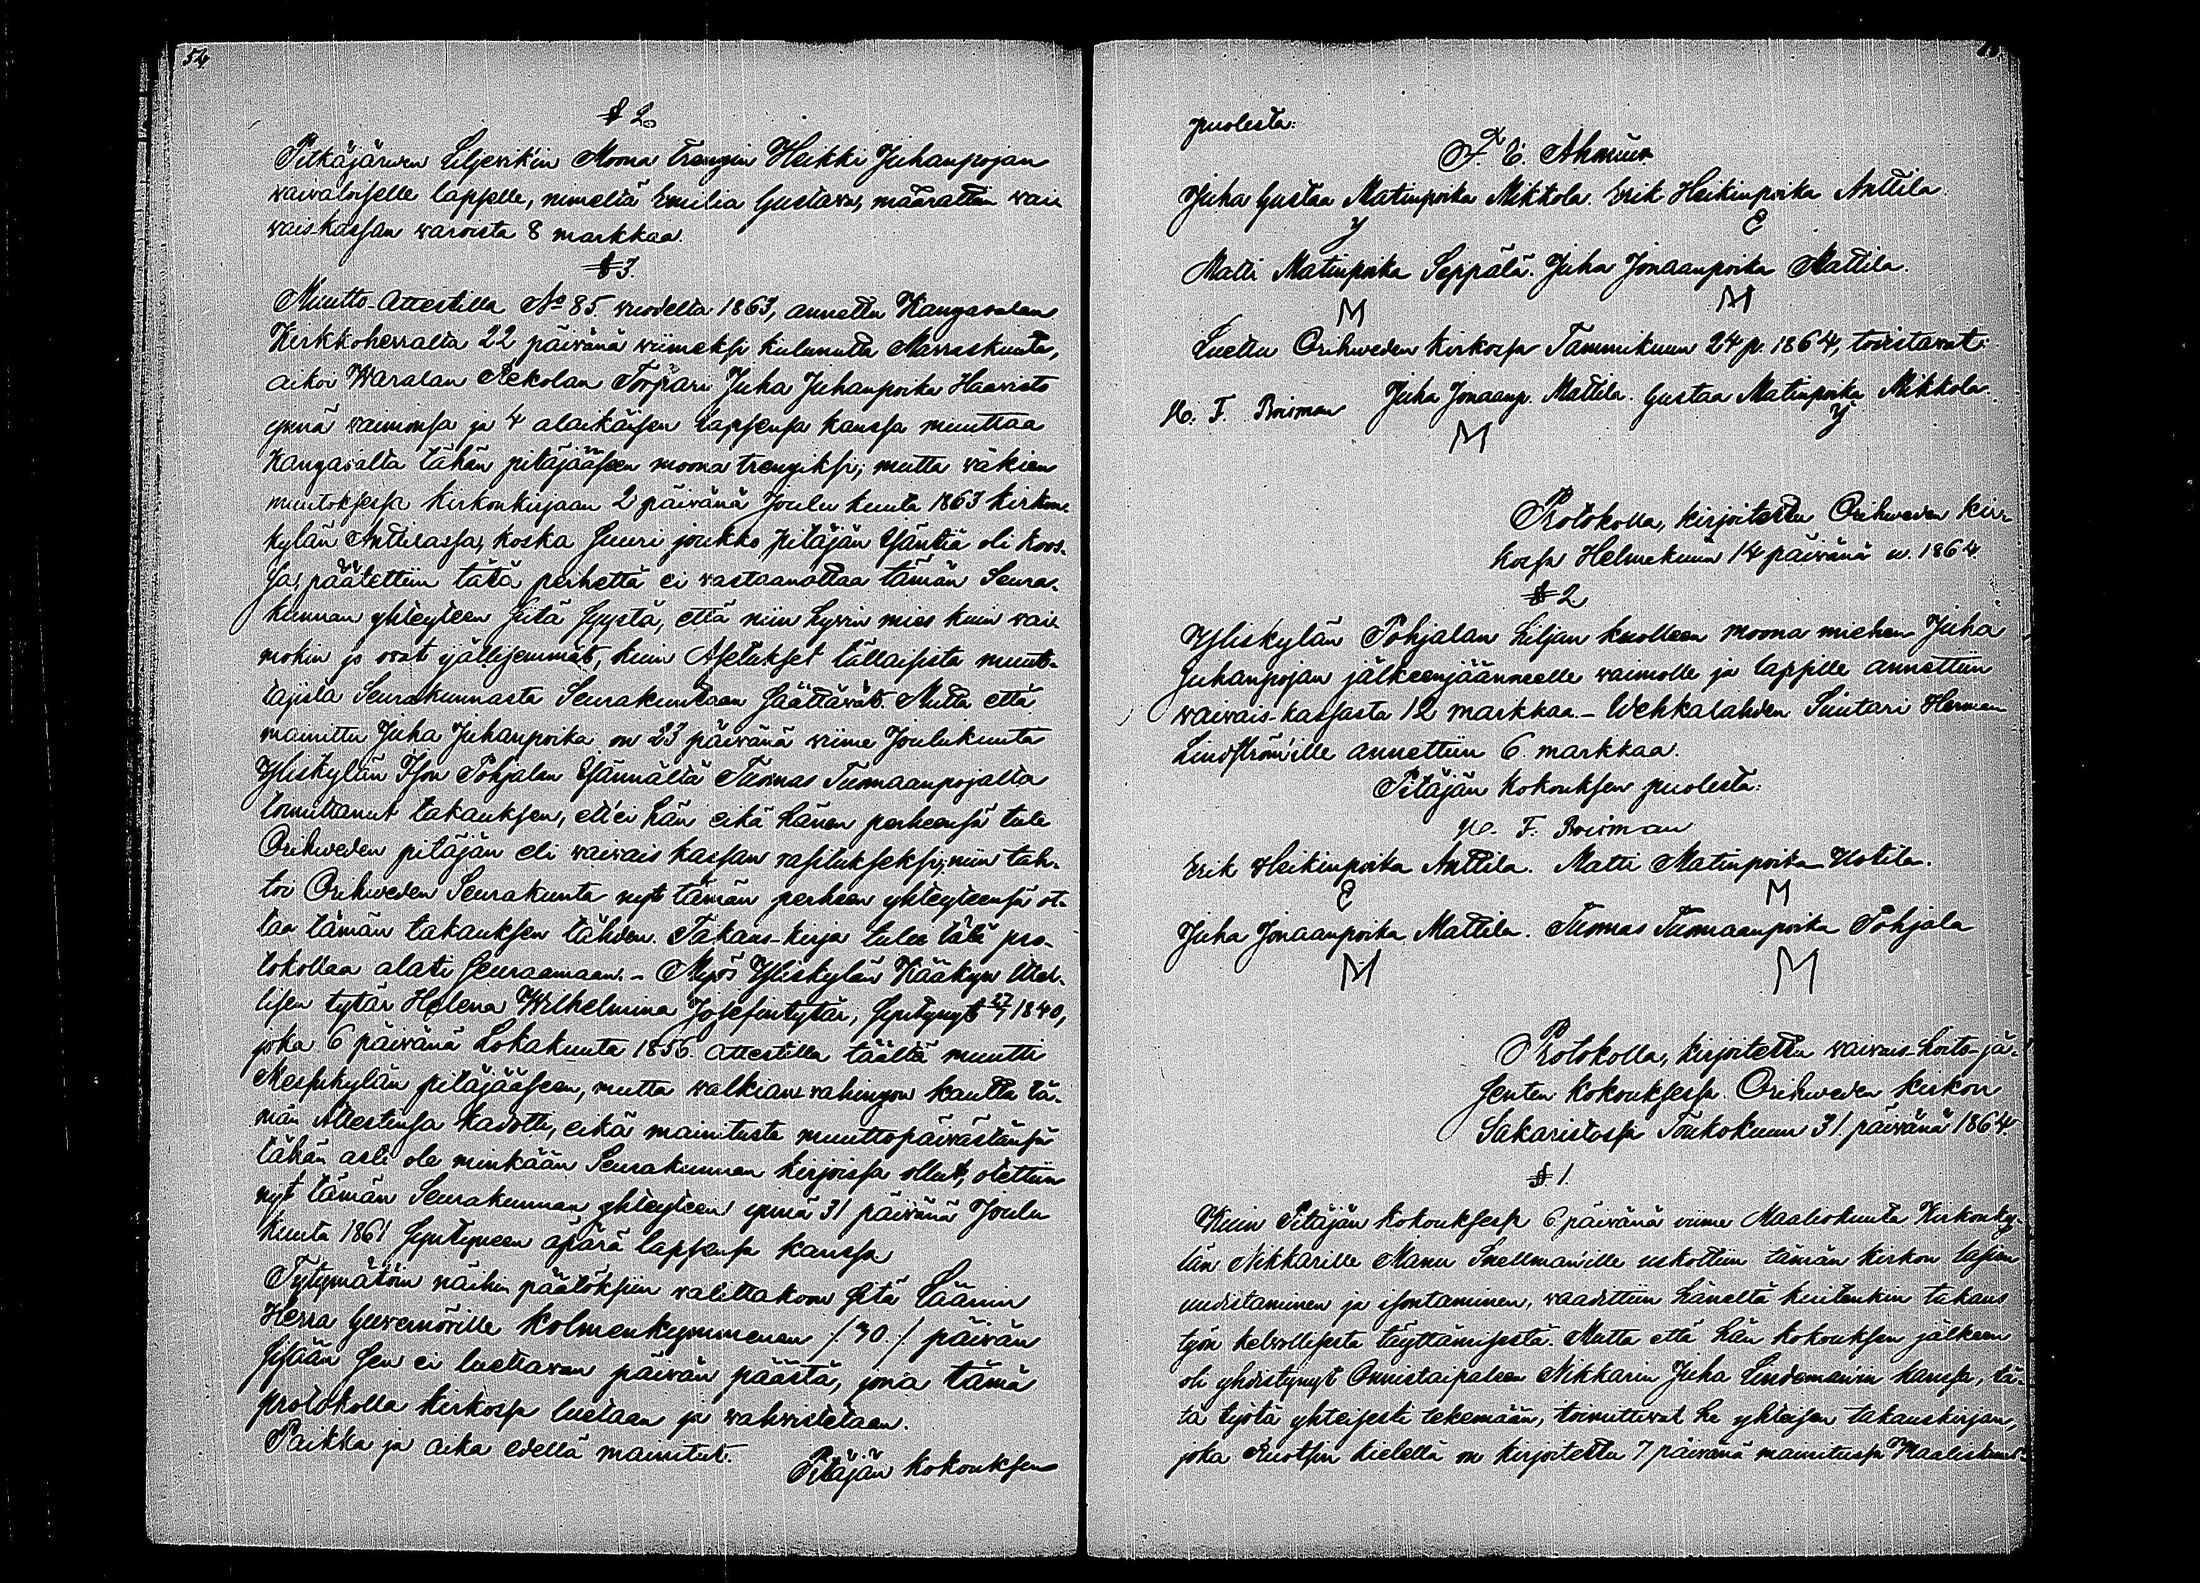 54.
§ 2.
Pitkäjärwen Liljerik'in Moona trengin Heikki Juhanpojan
waiwaloiselle lapselle, nimeltä Emilia Gustava, määrattiin wai-
waiskassan waroista 8 markkaa.
§ 3.
Muutto-Attestilla No 85 vuodelta 1863, annettu Kangasalan
Kirkkoherralta 22 päivänä viimeksi kulunutta Marraskuuta,
aikoi Waralan Rekolan Torpari Juha Juhanpoika Haavisto
ynnä vaimonsa ja 4 alaikäisen lapsensa kanssa muuttaa
Kangasalta tähän pitäjääseen moona trengiksi; mutta wäkien
muutoksessa kirkonkirjaan 2 päivänä Joulu kuuta 1863 kirkon
kylän Anttilassa, koska suuri joukko pitäjän isäntiä oli koos-
sa, päätettiin tätä perhettä ei vastaanottaa tämän Seura-
kunnan yhteyteen siitä syystä, että niin hyvin mies kuin vai-
mokin jo ovat ijällisemmät, kuin Asetukset tällaisista muut-
tajista Seurakunnasta Seurakuntaan säättävät. Mutta että
mainittu Juha Juhanpoika on 23 päivänä viime Joulukuuta
Yliskylän Ison Pohjalan Isännältä Tuomas Tuomaanpojalta
toimittanut takauksen, ett'ei hän eikä hänen perheensä tule
Orihweden pitäjän eli vaivais kassan rasitukseksi; niin tah-
toi Orihweden Seurakunta nyt tämän perheen yhteyteensä ot-
taa tämän takauksen tähden. Takaus-kirja tulee tätä pro-
tokollaa alati seuraamaan. – Myös Yliskylän Kääkyn itel-
lisen tytär Helena Wilhelmina Josefintytär, syntynyt 27/7 1840,
joka 6 päivänä Lokakuuta 1856 attestilla täältä muutti
Messukylän pitäjääseen, mutta walkian vahingon kautta tä-
män Attestinsa kadotti, eikä mainitusta muuttopäivästänsä
tähän asti ole minkään Seurakunnan kirjoissa ollut, otettiin
nyt tämän Seurakunnan yhteyteen ynnä 31 päivänä Joulu
kuuta 1861 syntyneen äpärä lapsensa kanssa
Tytymätöin näihin päätöksiin valittakoon sitä Läänin
Herra Guvernörille kolmenkymmenen /:30:/ päivän
sisään sen ei luettavan päivän päästä, jona tämä
protokolla kirkossa luetaan ja vahvistetaan.
Paikka ja aika edellä mainitut.
Pitäjän kokouksen
puolesta:
Juha Gustaa Matinpoika Mikkola. Erik Heikinpoika Anttila.
Y E
Matti Matinpoika Seppälä. Juha Jonaanpoika Mattila.
M M
Luettu Orihweden kirkossa Tammikuun 24 p. 1864, todistavat:
F. Roisman Juha Jonaanp. Mattila. Gustaa Matinpoika Mikkola.
M Y
Protokolla, kirjoitettu Orihweden kir-
kossa Helmekuun 14 päivänä w. 1864
§ 2.
Yliskylän Pohjalan Liljan kuolleen moona miehen Juha
Juhanpojan jälkeenjäänneelle vaimolle ja lapsille annettiin
vaivais-kassasta 12 markkaa. – Wehkalahden Suutari Herman
Lindström'ille annettiin 6 markkaa.
Pitäjän kokouksen puolesta:
F. Roisman
Erik Heikinpoika Anttila. Matti Matinpoika Uotila.
E M
Juha Jonaanpoika Mattila. Tuomas Tuomaanpoika Pohjala
M M
Protokolla, kirjoitettu vaivais-hoito-jä-
senten kokouksessa Orihweden kirkon
Sakaristossa Toukokuun 31 päivänä 1864.
§ 1.
Kuin Pitäjän kokouksessa 6 päivänä viime Maaliskuuta Kirkonky-
län Nikkarille Manu Snellman'ille uskottiin tämän kirkon
uudistaminen ja isontaminen, vaadittiin häneltä kuitenkin takaus
työn kelvollisesta täyttämisestä. Mutta että hän kokouksen jälkeen
oli yhdistynyt Onnistaipaleen Nikkarin Juha Lindeman'in kanssa, tä-
tä työtä yhteisesti tekemään, toimittivat he yhteisen takauskirjan,
joka Ruotsin kielellä on kirjoitettu 7 päivänä mainitussa Maaliskuus-